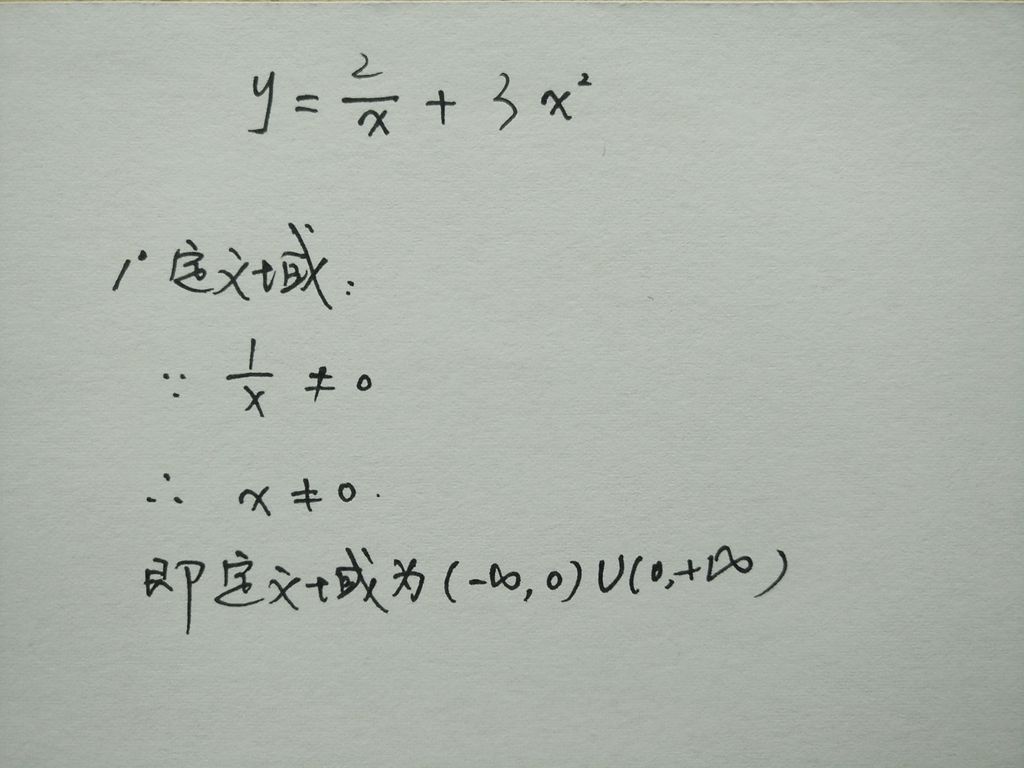 y = 2/x + 3x²
1° 定义域:
∵ 1/x ≠ 0
∴ x ≠ 0.
即定义域为(-∞,0)∪(0,+∞)